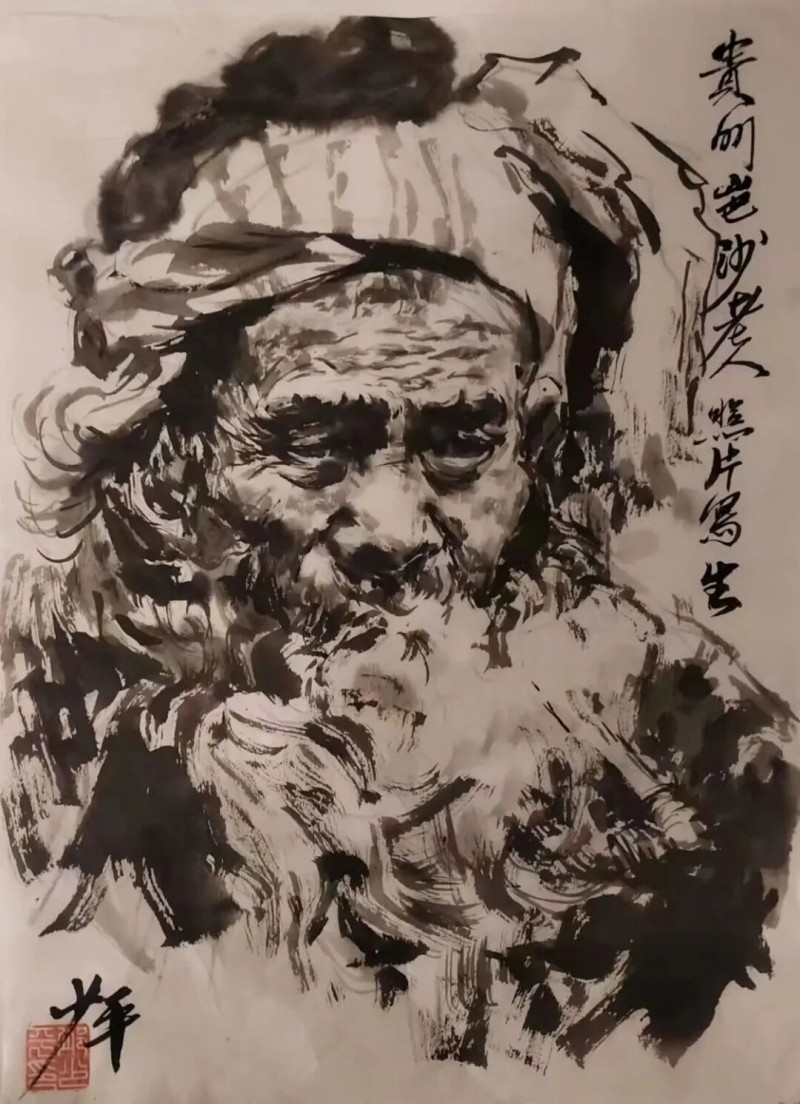 貴州岜沙老人 照片寫生
少平